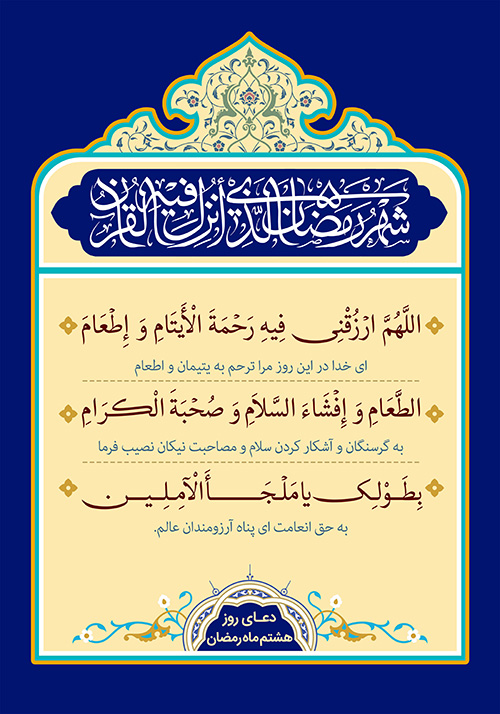 شهر رمضان الذی أنزل فیه القرآن
اللَّهُمَّ ارْزُقْنِی فِیهِ رَحْمَةَ الْأَیتَامِ وَ إِطْعَامَ
ای خدا در این روز مرا ترحم به یتیمان و اطعام
الطَّعَامِ وَ إِفْشَاءَ السَّلاَمِ وَ صُحْبَةَ الْکَرَامِ
به گرسنگان و آشکار کردن سلام و مصاحبت نیکان نصیب فرما
بِطَوْلِکَ یا مَلْجَأَ الْآمِلِینَ
به حق انعامت ای پناه آرزومندان عالم.
دعای روز
هشتم ماه رمضان